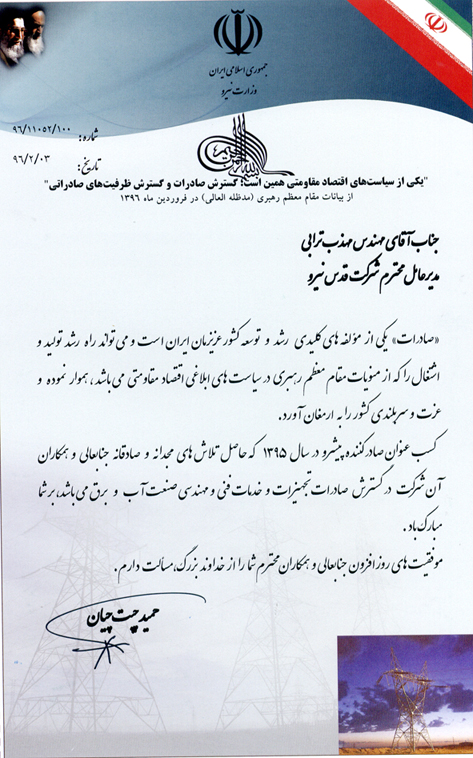 جمهوری اسلامی ایران
وزارت نیرو
شماره: ۹۶/۱۱۰۵۲/۱۰۰
تاریخ: ۹۶/۲/۰۳
بسم الله الرحمن الرحیم
"یکی از سیاست‌های اقتصاد مقاومتی همین است؛ گسترش صادرات و گسترش ظرفیت‌های صادراتی"
از بیانات مقام معظم رهبری (مدظله العالی) در فروردین ماه ۱۳۹۶
جناب آقای مهندس مهذب ترابی
مدیرعامل محترم شرکت قدس نیرو
«صادرات» یکی از مؤلفه های کلیدی رشد و توسعه کشور عزیزمان ایران است و می تواند راه رشد تولید و
اشتغال را که از منویات مقام معظم رهبری در سیاست های ابلاغی اقتصاد مقاومتی می باشد، هموار نموده و
عزت و سربلندی کشور را به ارمغان آورد.
کسب عنوان صادرکننده پیشرو در سال ۱۳۹۵ که حاصل تلاش های مجدانه و صادقانه جنابعالی و همکاران
آن شرکت در گسترش صادرات تجهیزات و خدمات فنی و مهندسی صنعت آب و برق می باشد، بر شما
مبارک باد.
موفقیت های روزافزون جنابعالی و همکاران محترم شما را از خداوند بزرگ، مسألت دارم.
حمید چیت چیان